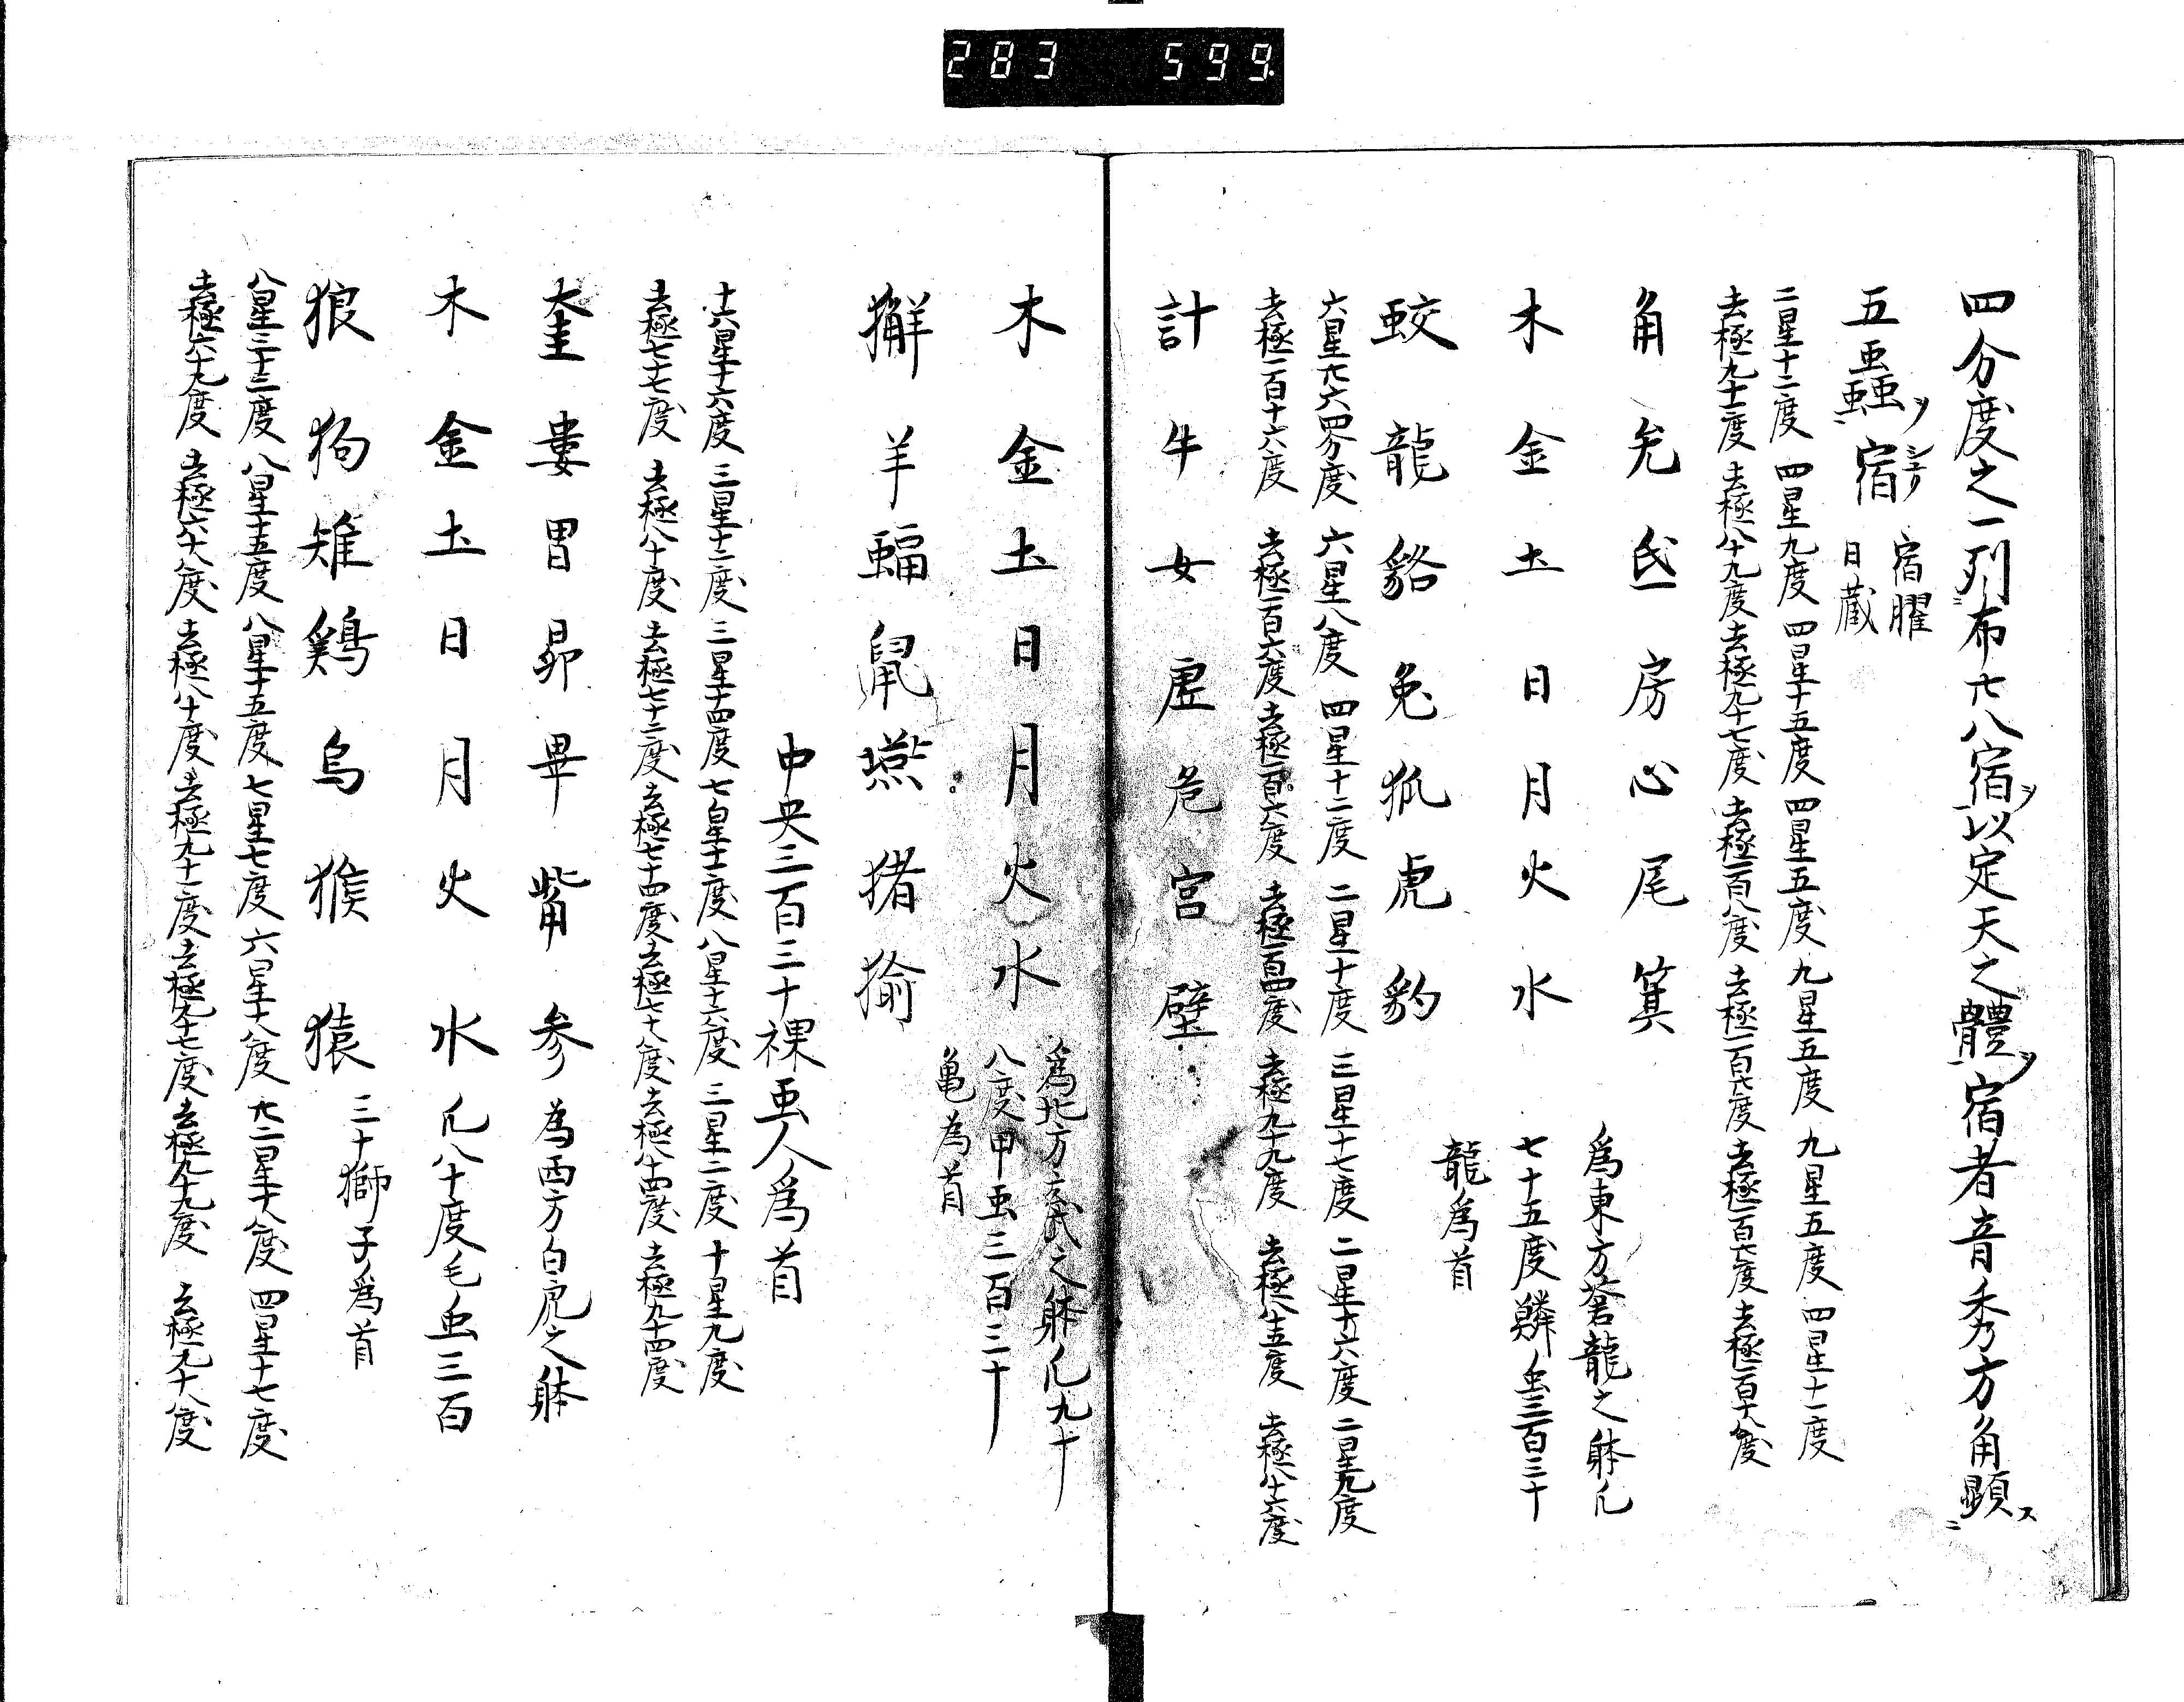 283 599.
四分度之一列布廿八宿以定天之體宿者音秀方角顕
五蟲宿 宿曜
日蔵
二星十二度 四星九度 四星十五度 四星五度 九星五度 九星五度 四星十一度
去極九十一度 去極八十九度 去極九十七度 去極一百八度 去極一百度 去極一百度 去極一百十八度
角 亢 氐 房 心 尾 箕
木 金 土 日 月 火 水
蛟 龍 貉 兔 狐 虎 豹
為東方蒼龍之躰凡
七十五度鱗虫三百三十
龍為首
六星廿六四分度 六星八度 四星十二度 二星十度 三星十七度 二星十六度 二星九度
去極一百十六度 去極一百六度 去極一百六度 去極一百四度 去極九十九度 去極八十五度 去極八十六度
計 牛 女 虚 危 宮 壁
木 金 土 日 月 火 水
為北方玄武之躰凡九十
八度甲虫三百三十
亀為首
獬 羊 蝠 鼠 燕 猪 㺄
中央三百三十裸虫人為首
十六星十六度 三星十二度 三星十四度 七星十一度 八星十六度 三星二度 十星九度
去極七十七度 去極八十度 去極七十二度 去極七十四度 去極七十八度 去極八十四度 去極九十四度
奎 婁 胃 昴 畢 觜 参
為西方白虎之躰
木 金 土 日 月 火 水
凡八十度毛虫三百
狼 狗 雉 鶏 烏 猴 猿
三十獅子為首
八星三十三度 八星十五度 八星十五度 七星七度 六星十八度 廿二星十八度 四星十七度
去極六十九度 去極六十八度 去極八十度 去極九十一度 去極九十七度 去極九十九度 去極九十八度